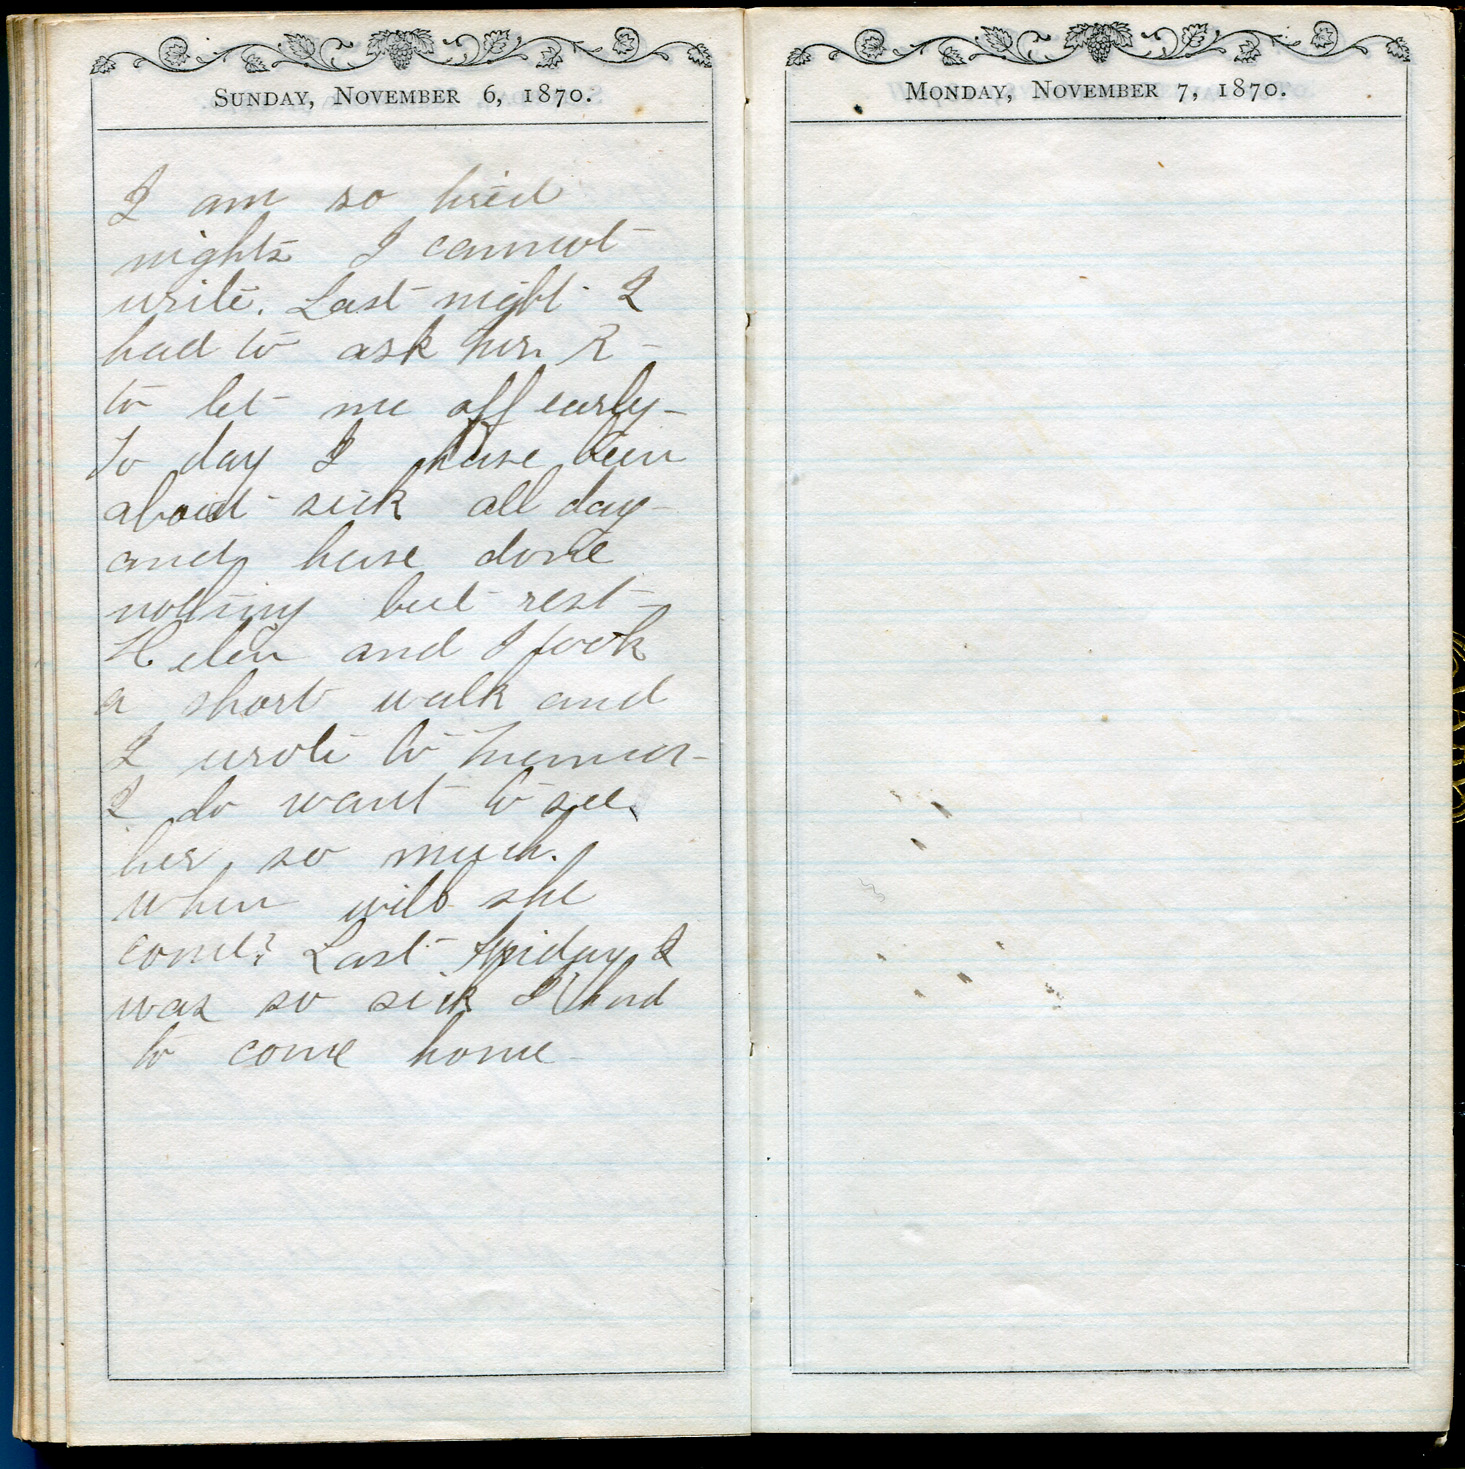 SUNDAY, NOVEMBER 6, 1870.
I am so tired
nights I cannot
write. Last night I
had to ask R-
to let me off early-
To day I have been
about sick all day-
and have done
nothing but rest-
Helen and I took
a short walk and
I wrote to
I do want to see
her so much.
When will she
come? Last Friday I
was so sick I had
to come home-
MONDAY, NOVEMBER 7, 1870.